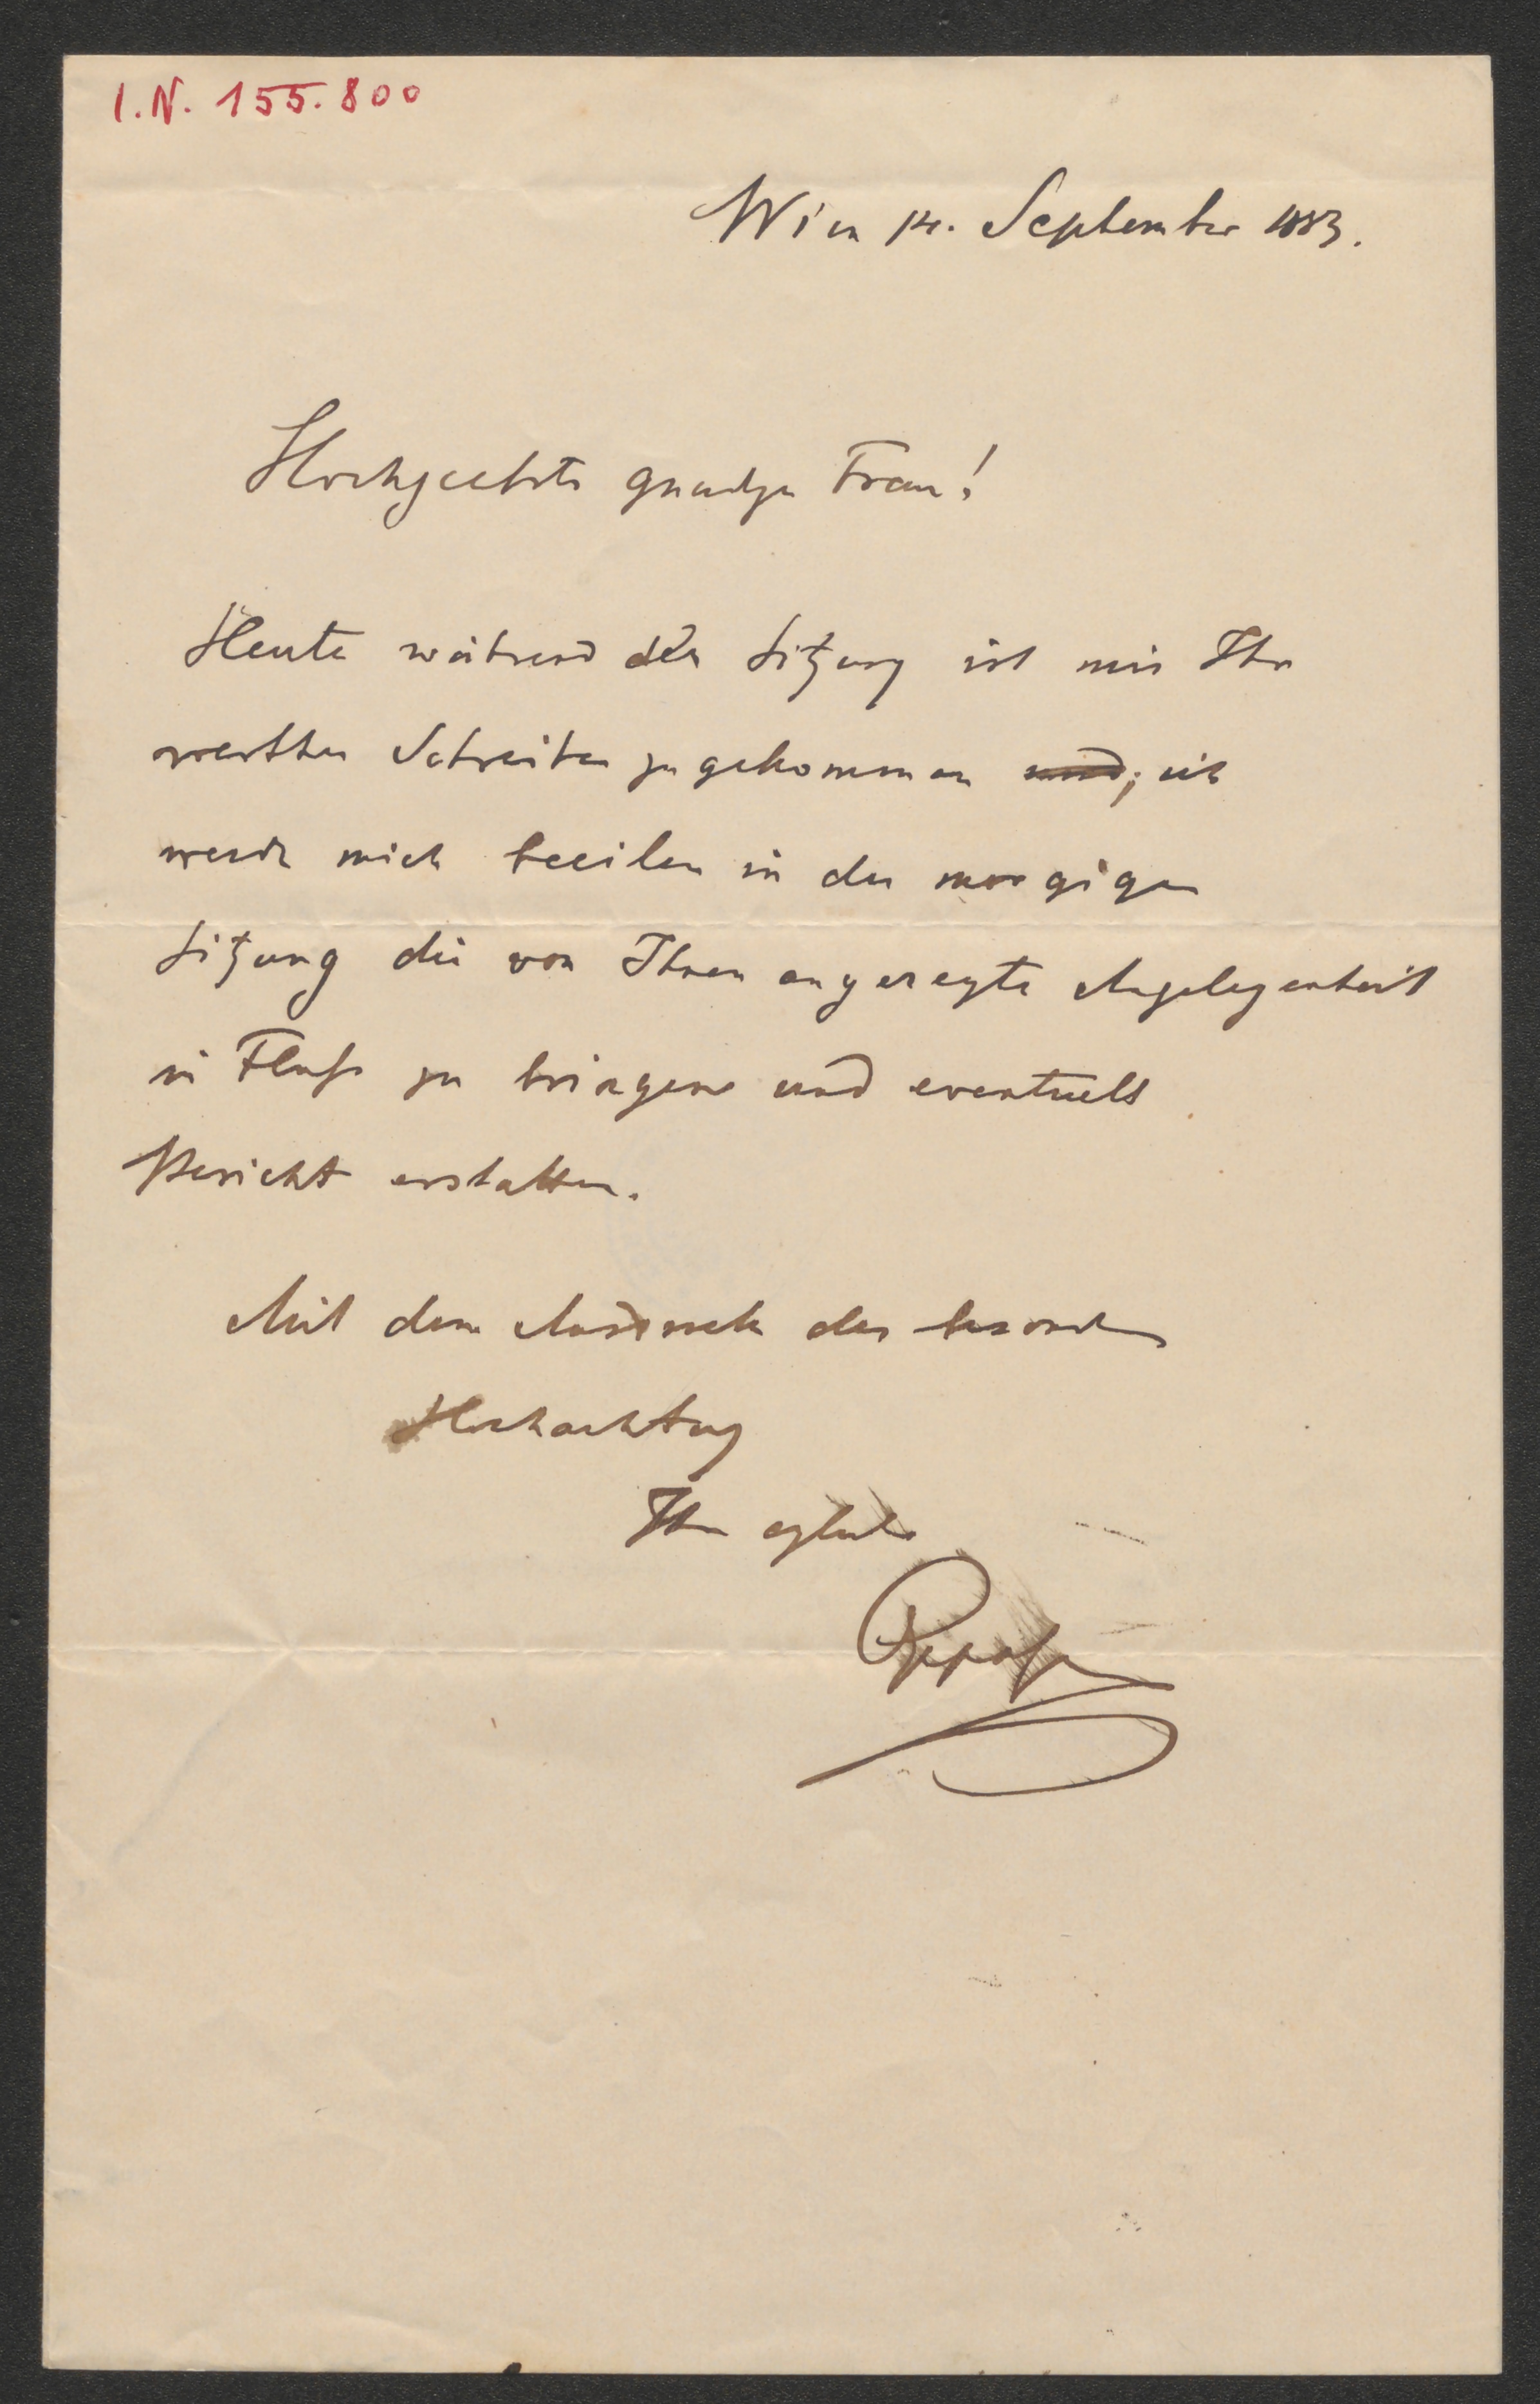 I.N. 155.800
Wien 14. September 1883.
Hochgeehrte gnädige Frau!
Heute während der Sitzung ist mir Ihr
werthes Schreiben zugekommen und; ich
werde mich beeilen in der morgigen
Sitzung die von Ihnen angeregte Angelegenheit
in Fluß zu bringen und eventuell
Bericht erstatten.
Mit dem Ausdruck der besonderen
Hochachtung
Ihr